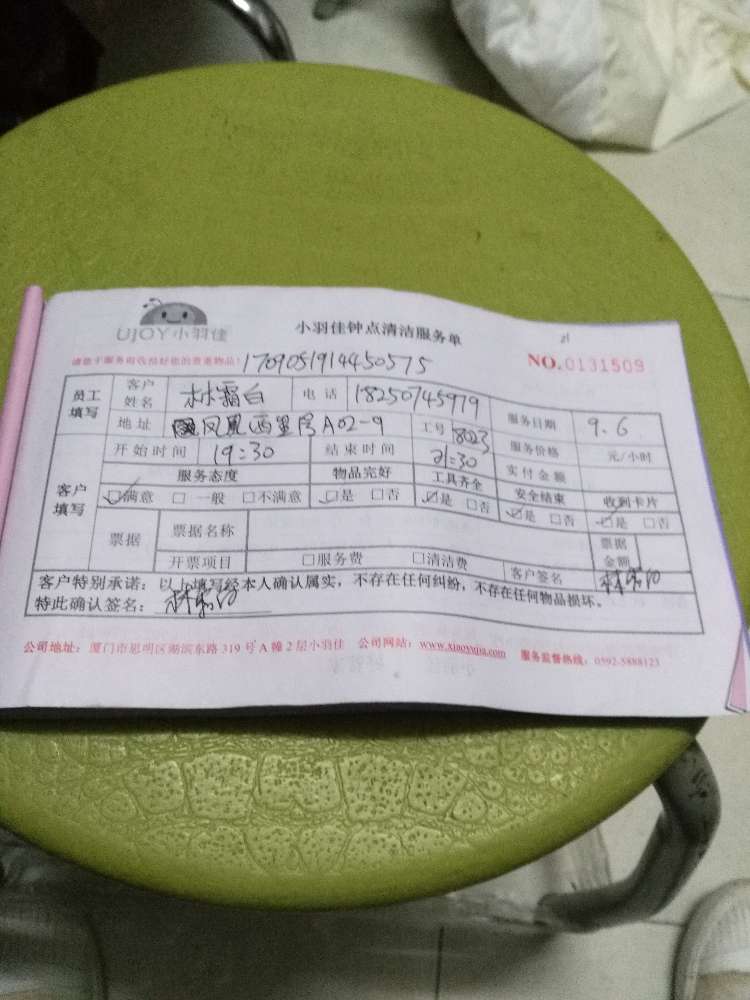 UJOY小羽佳 小羽佳钟点清洁服务单
请您于服务前收拾好您的贵重物品! 170905191445057 5 NO.0131509
员工填写 客户姓名 林霜白 电话 18250745979 服务日期 9.6
地址 凤凰西里 A02-9 工号 8023 服务价格 元/小时
客户填写 开始时间 19:30 结束时间 21:30 实付金额
服务态度 物品完好 工具齐全 安全结束 收到卡片
☑满意 □一般 □不满意 ☑是 □否 ☑是 □否 ☑是 □否 ☑是 □否
票据 票据名称 票据金额
开票项目 □服务费 □清洁费 客户签名
客户特别承诺:以上填写经本人确认属实,不存在任何纠纷,不存在任何物品损坏。
特此确认签名:
公司地址:厦门市思明区湖滨东路319号A幢2层小羽佳 公司网站:www.xiaoyujia.com 服务监督热线:0592-5888123